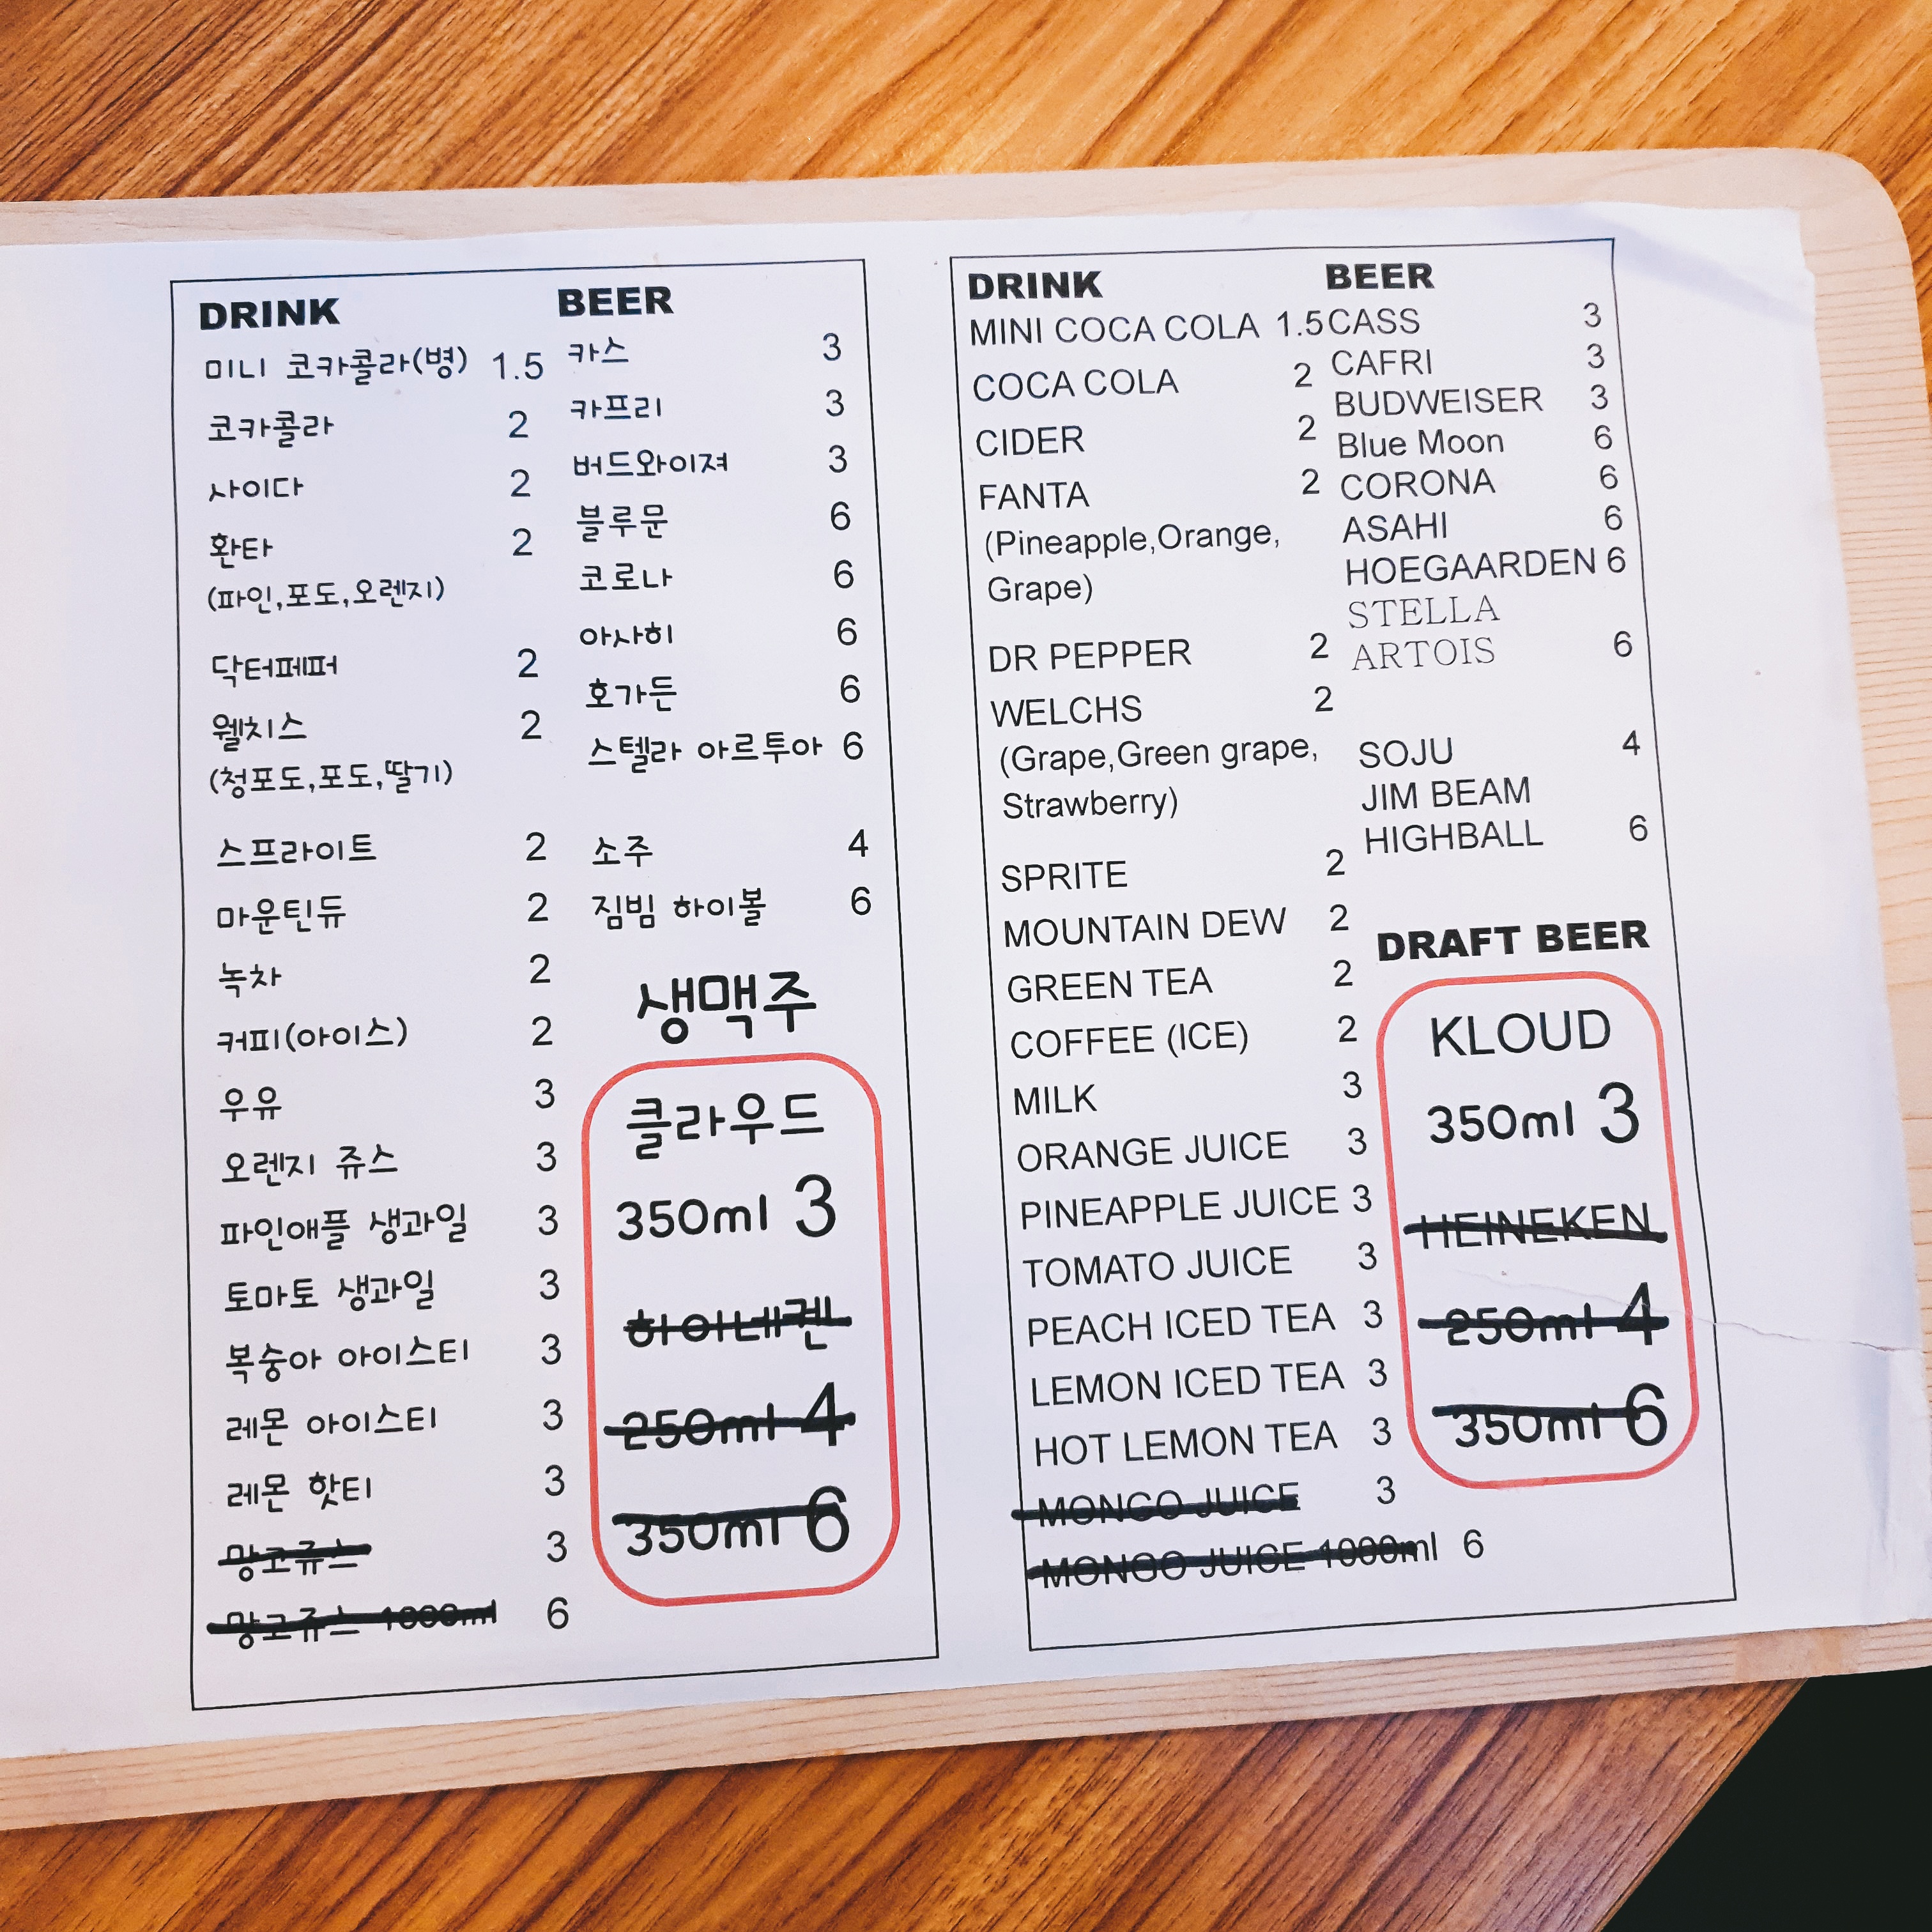 DRINK
미니 코카콜라(병) 1.5
코카콜라 2
사이다 2
환타 2
(파인,포도,오렌지)
닥터페퍼 2
웰치스 2
(청포도,포도,딸기)
스프라이트 2
마운틴듀 2
녹차 2
커피(아이스) 2
우유 3
오렌지 쥬스 3
파인애플 생과일 3
토마토 생과일 3
복숭아 아이스티 3
레몬 아이스티 3
레몬 핫티 3
망고쥬스 3
망고쥬스 1000ml 6
BEER
카스 3
카프리 3
버드와이져 3
블루문 6
코로나 6
아사히 6
호가든 6
스텔라 아르투아 6
소주 4
짐빔 하이볼 6
생맥주
클라우드
350ml 3
하이네켄
250ml 4
350ml 6
DRINK
MINI COCA COLA 1.5
COCA COLA 2
CIDER 2
FANTA 2
(Pineapple,Orange,
Grape)
DR PEPPER 2
WELCHS 2
(Grape,Green grape,
Strawberry)
SPRITE 2
MOUNTAIN DEW 2
GREEN TEA 2
COFFEE (ICE) 2
MILK 3
ORANGE JUICE 3
PINEAPPLE JUICE 3
TOMATO JUICE 3
PEACH ICED TEA 3
LEMON ICED TEA 3
HOT LEMON TEA 3
MONGO JUICE 3
MONGO JUICE 1000ml 6
BEER
CASS 3
CAFRI 3
BUDWEISER 3
Blue Moon 6
CORONA 6
ASAHI 6
HOEGAARDEN 6
STELLA
ARTOIS 6
SOJU 4
JIM BEAM
HIGHBALL 6
DRAFT BEER
KLOUD
350ml 3
HEINEKEN
250ml 4
350ml 6